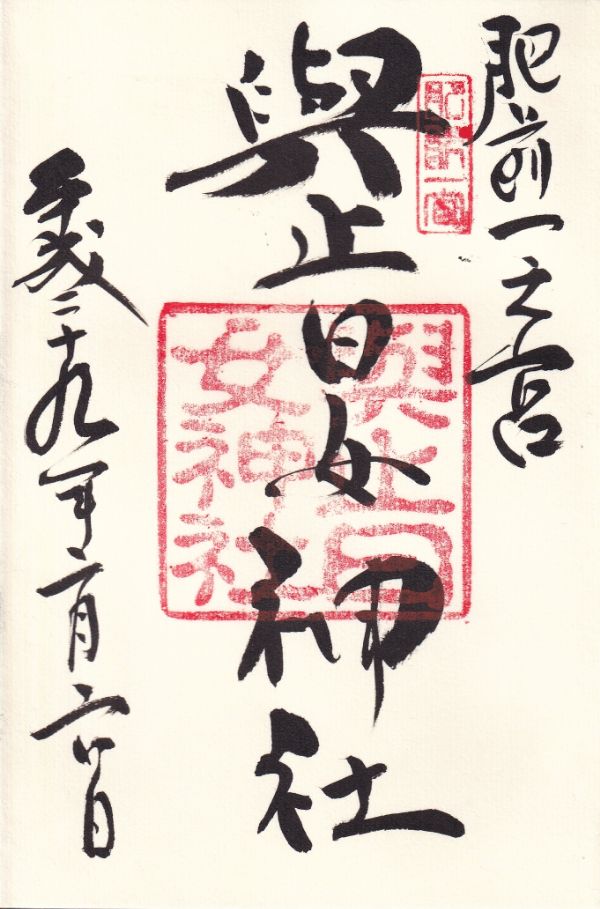 肥前一之宮
肥前一宮
與止日女神社
與止日
女神社
平成二十九年二月六日